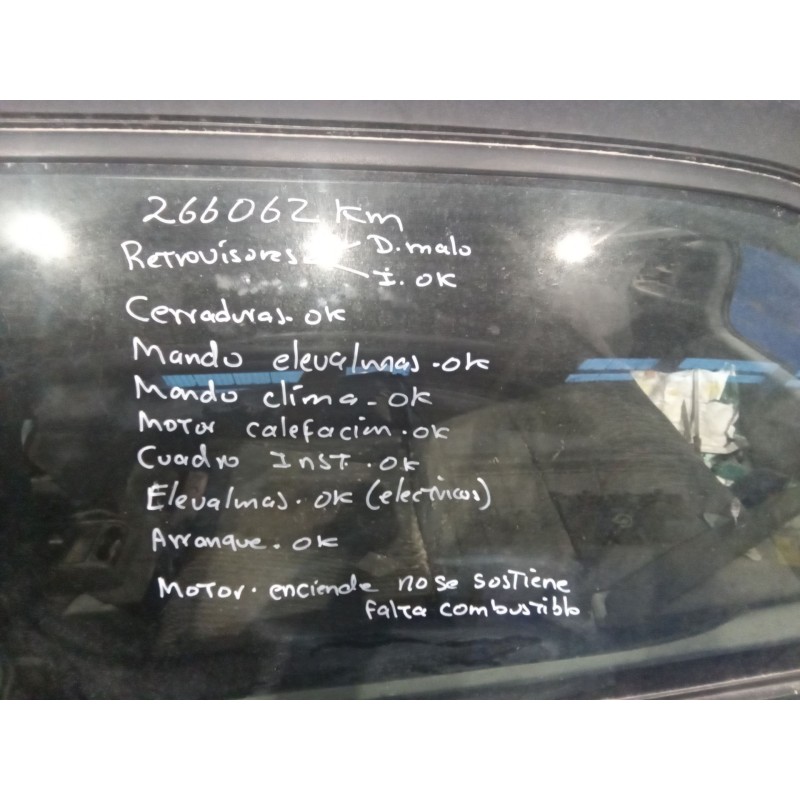 266062 Km
Retrovisores D. malo
I. OK
Cerraduras. OK
Mando elevalunas. OK
Mando clima - OK
Motor calefacion. OK
Cuadro Inst. OK
Elevalunas. OK (electricos)
Arranque. OK
Motor. enciende no se sostiene
falta combustible